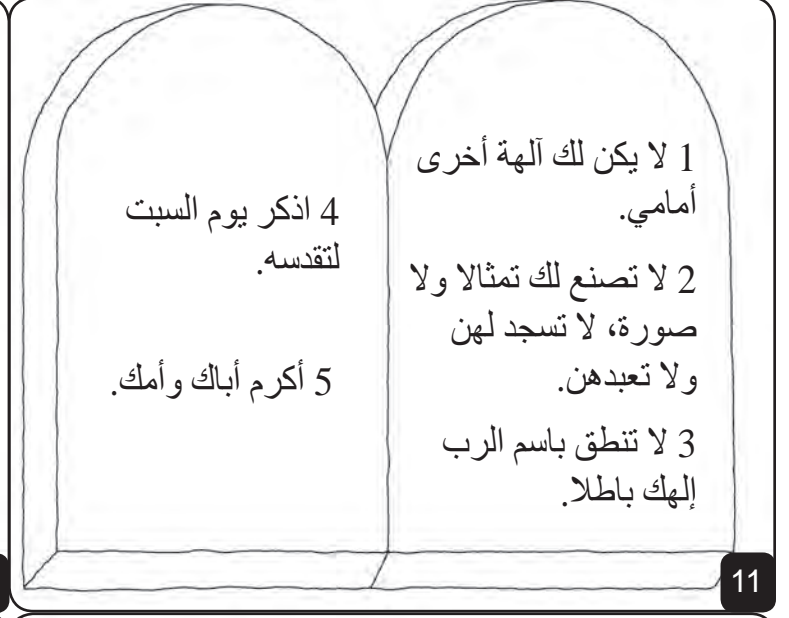 1 لا يكن لك آلهة أخرى
أمامي.
2 لا تصنع لك تمثالا ولا
صورة، لا تسجد لهن
ولا تعبدهن.
3 لا تنطق باسم الرب
إلهك باطلا.
4 اذكر يوم السبت
لتقدسه.
5 أكرم أباك وأمك.
11